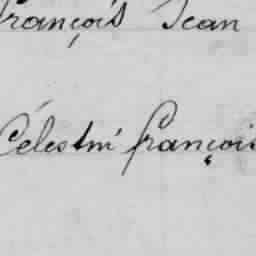 françois Jean
Célestin françois